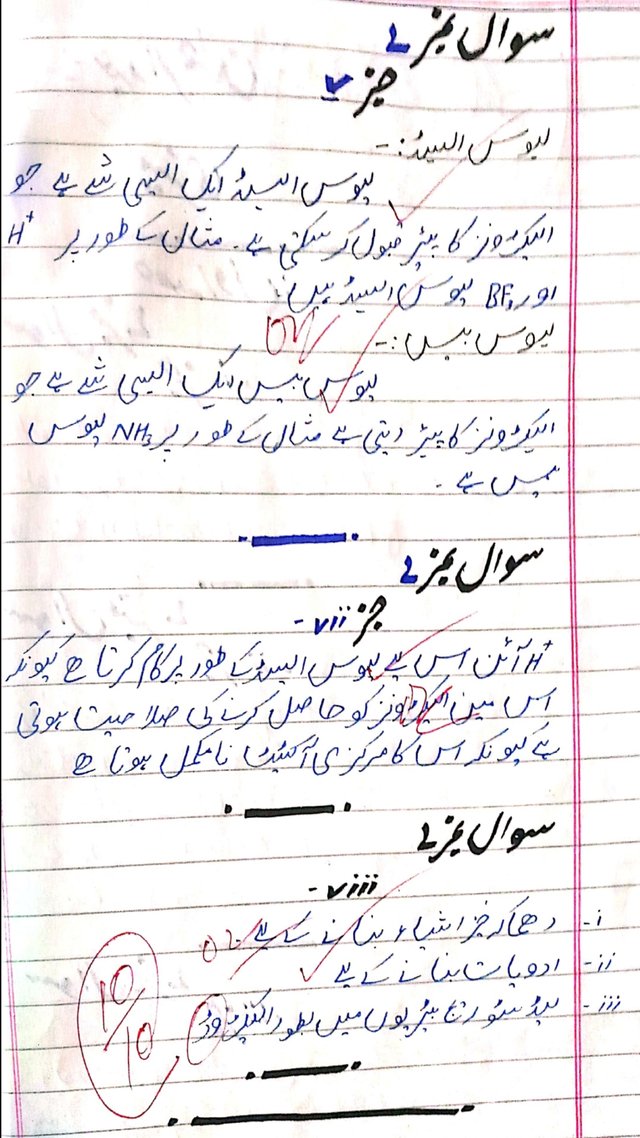 سوال نمبر 2
جز v
لیوس ایسڈ:-
لیوس ایسڈ ایک ایسی شے ہے جو
الیکٹرونز کا پیئر قبول کر سکتی ہے۔ مثال کے طور پر H⁺
اور BF₃ لیوس ایسڈ ہیں۔
لیوس بیس:-
لیوس بیس ایک ایسی شے ہے جو
الیکٹرونز کا پیئر دیتی ہے مثال کے طور پر NH₃ لیوس
بیس ہے۔
سوال نمبر 2
جز vii-
H⁺ آئن اس لیے لیوس ایسڈ کے طور پر کام کرتا ہے کیونکہ
اس میں الیکٹرونز کو حاصل کرنے کی صلاحیت ہوتی
ہے کیونکہ اس کا مرکزی آکٹیٹ نامکمل ہوتا ہے
سوال نمبر 2
viii-
i- دھماکہ خیز اشیاء بنانے کے لیے۔
ii- ادویات بنانے کے لیے
iii- لیڈ سٹوریج بیٹریوں میں بطور الیکٹرو
10/10